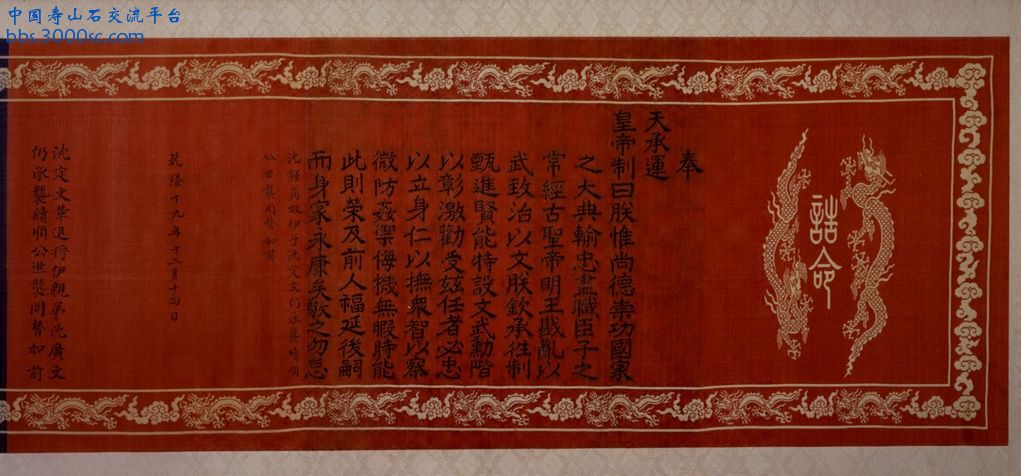 中国寿山石交流平台
bbs.3000sc.com
誥命
奉
天承運
皇帝制曰朕惟尚德崇功國家
之大典輸忠盡職臣子之
常經古聖帝明王戡亂以
武致治以文朕欽承往制
甄進賢能特設文武勳階
以彰激勸受茲任者必忠
以立身仁以撫衆智以察
微防姦禦侮機無暇時能
此則榮及前人福延後嗣
而身家永康矣敬之勿怠
沈病故伊子沈定文仍承襲續順
公世襲罔替如前
乾隆十九年十二月十四日
沈定文革退將伊親弟沈廣文
仍承襲續順公世襲罔替如前